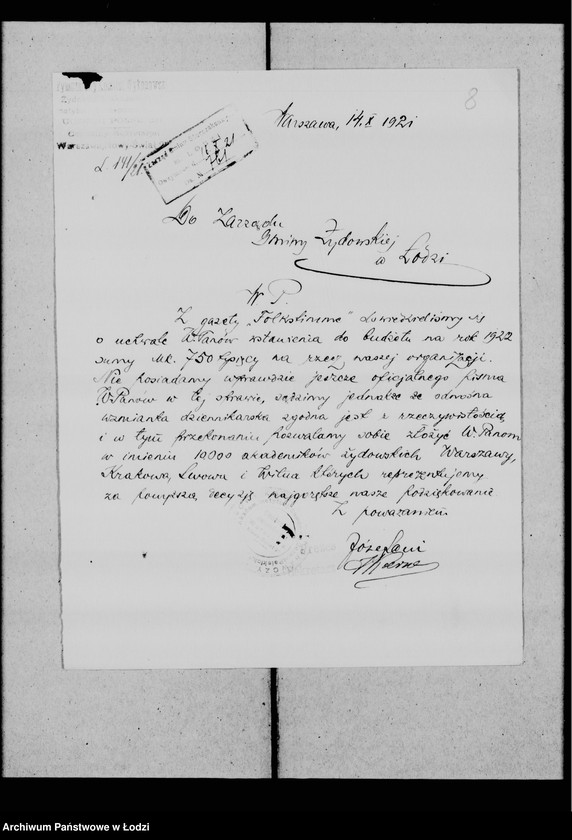 8
Warszawa, 14.X 1921
L 141/21
Do Zarządu
Gminy Żydowskiej
w Łodzi
W. P.
Z gazety "Folksstimme" dowiedzieliśmy się
o uchwale W.Panów wstawienia do budżetu na rok 1922
sumy Mk. 750 tysięcy na rzecz naszej organizacji.
Nie posiadamy wprawdzie jeszcze oficjalnego pisma
W.Panów w tej sprawie, sądzimy jednakże że odnośna
wzmianka dziennikarska zgodna jest z rzeczywistością
i w tym przekonaniu pozwalamy sobie złożyć W.Panom
w imieniu 10000 akademików żydowskich Warszawy,
Krakowa, Lwowa i Wilna których reprezentujemy
za powyższą decyzję najgorętsze nasze podziękowanie
Z poważaniem
Archiwum Państwowe w Łodzi